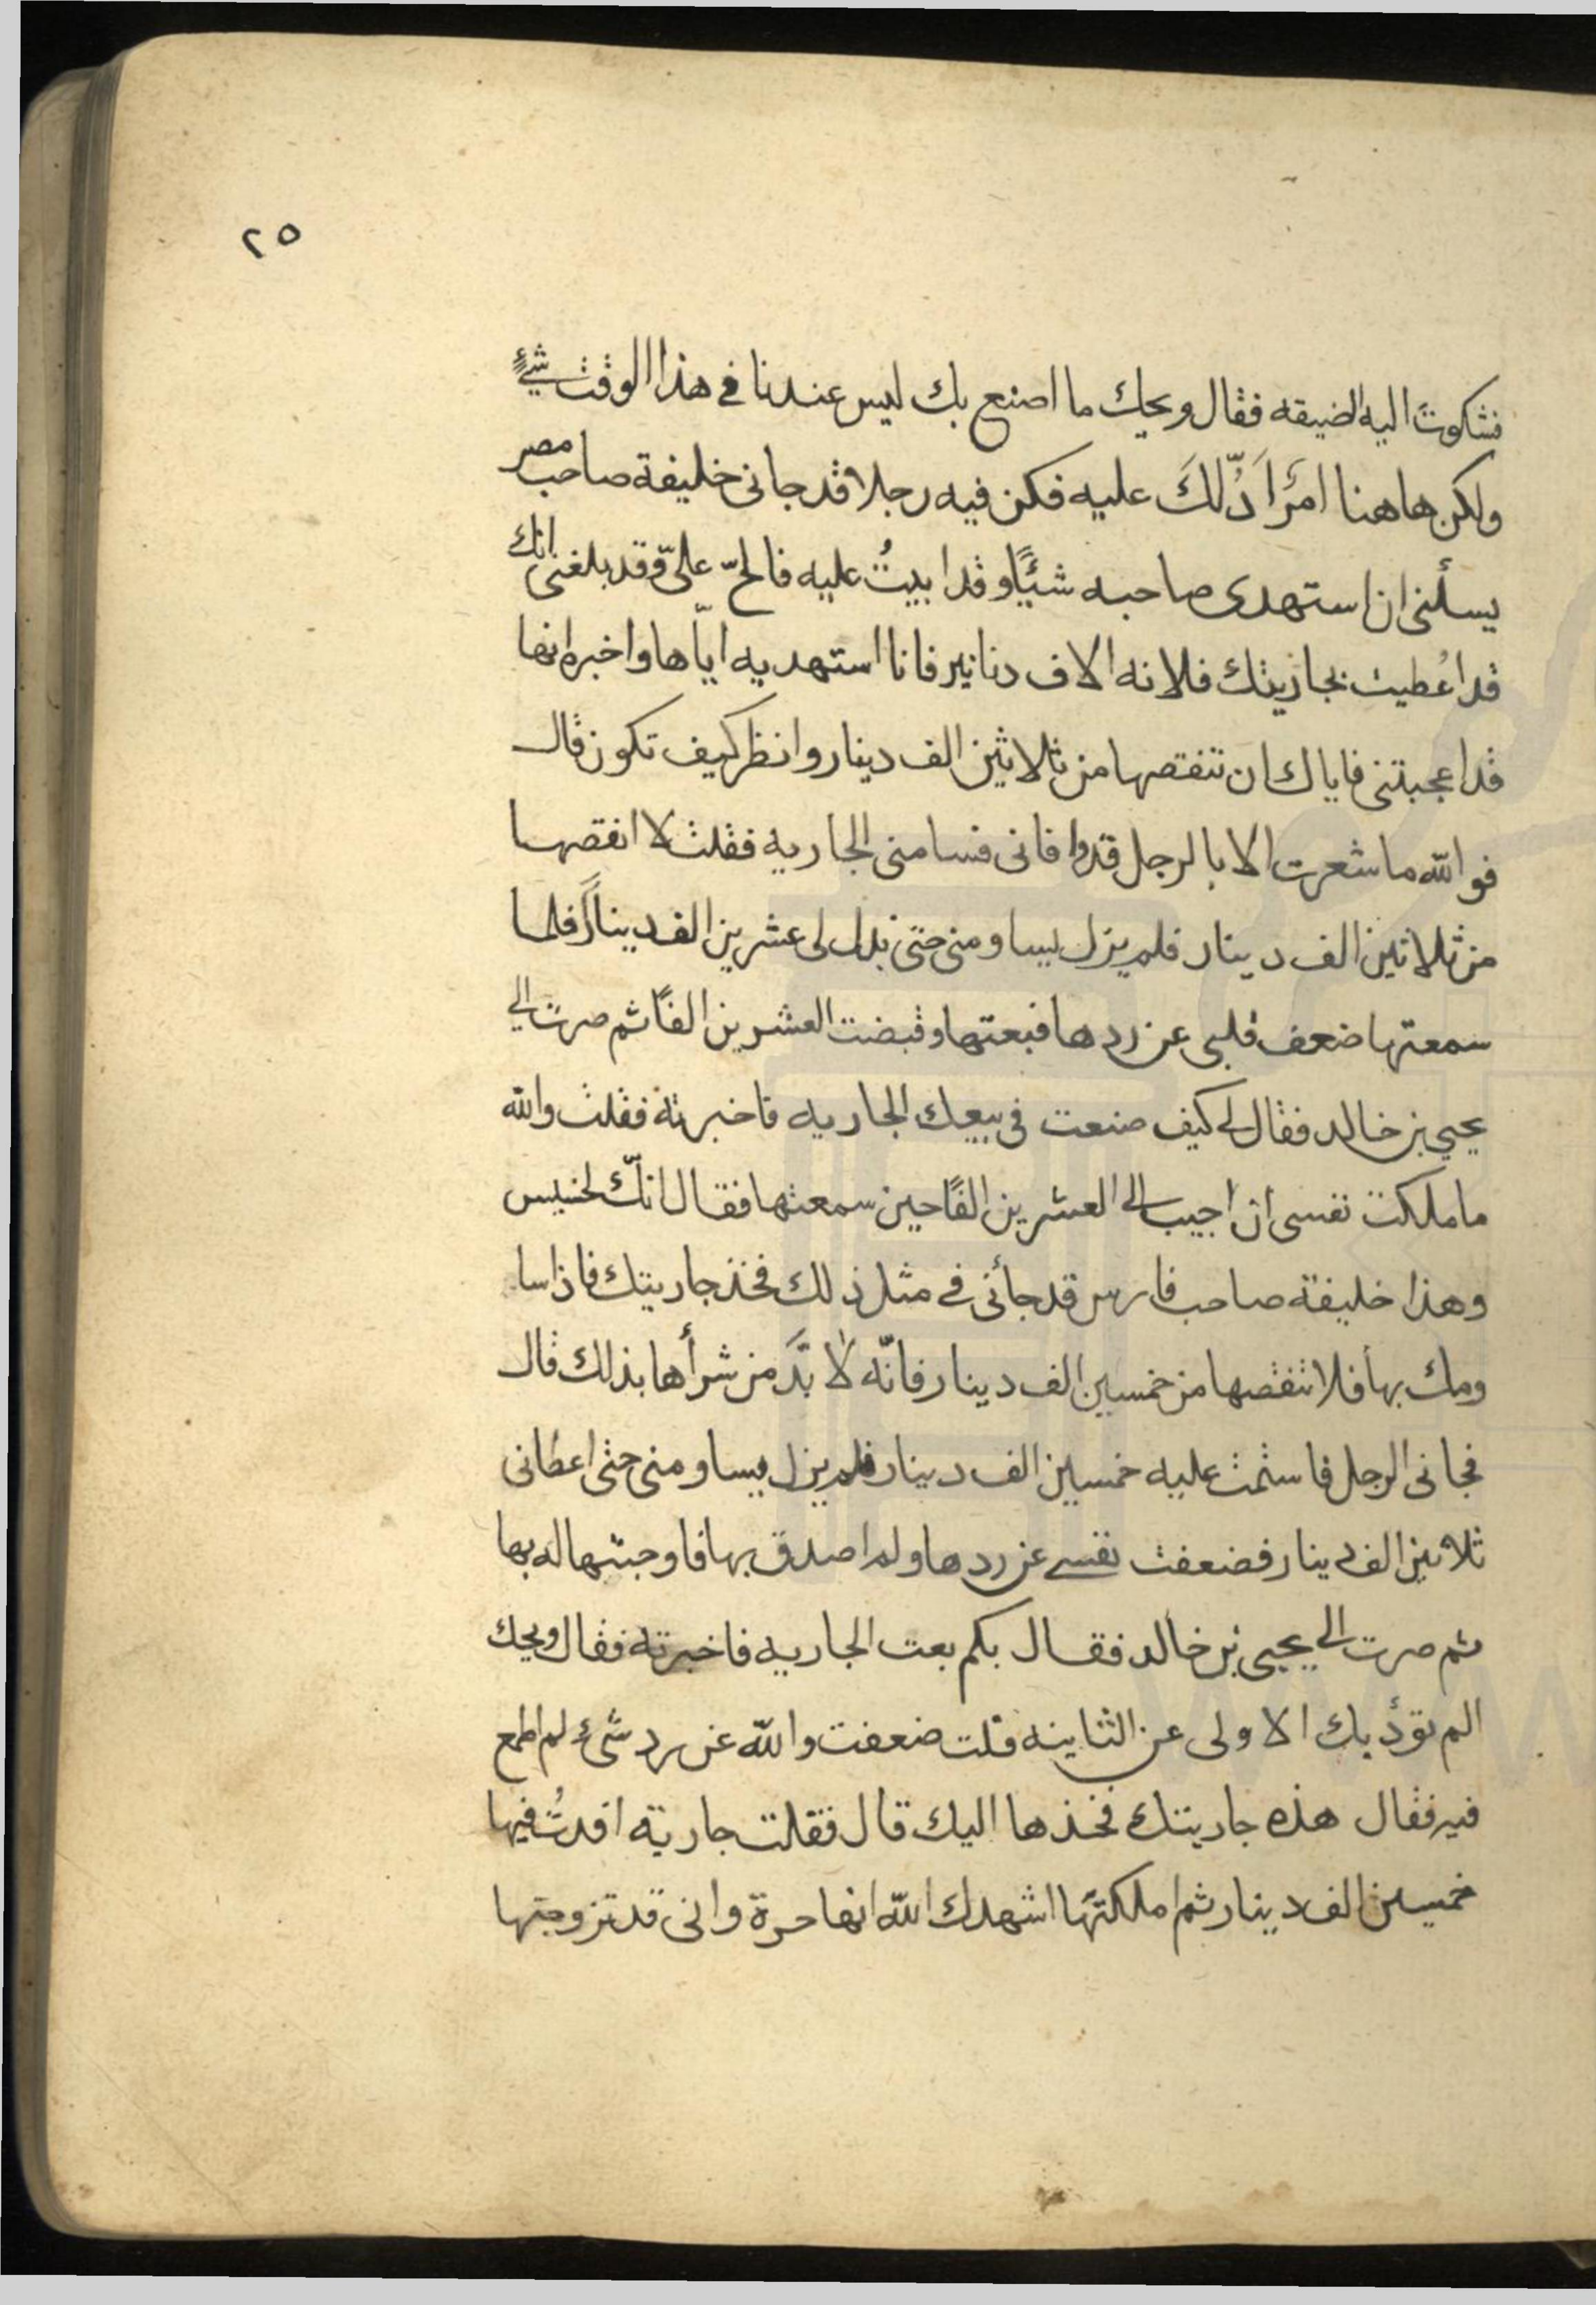 ٢٥
فشكوت اليه الضيقه فقال ويحك ما اصنع بك ليس عندنا في هذا الوقت شيءٌ
ولكن هاهنا امرَاَدُّلّكَ عليه فكن فيه رجلا قد جانى خليفة صاحب مصر
يسألنى ان استهدى صاحبه شيئًا وقد ابيتُ عليه فالحّ علىّ وقد بلغنى انك
قد اعُطيت بجاريتك فلانه الاف دنانير فانا استهديه ايّاها واخبره انها
قد اعجبتنى فاياك ان تنقصها من ثلاثين الف دينار وانظر كيف تكون قال
فوالله ما شعرت الا بالرجل قد وافانى فسامنى الجاريه فقلت لا انقصها
من ثلاثين الف دينار فلم يزل يساومنى حتى بذل لى عشرين الف دينارً فلما
سمعتها ضعف قلبى عن ردها فبعتها وقبضت العشرين الفًا ثم صرت الي
يحيي بن خالد فقال لي كيف صنعت في بيعك الجاريه فاخبرته فقلت والله
ما ملكت نفسى ان اجيب الي العشرين الفًا حين سمعتها فقال انّك لخسيس
وهذا خليفة صاحب فارس قد جأنى في مثل ذلك فخذ جاريتك فاذا سا
ومك بها فلا تنقصها من خمسين الف دينار فانّه لا بدَّ من شرأها بذلك قال
فجانى الرجل فاستمت عليه خمسين الف دينار فلم يزل يساومنى حتى اعطانى
ثلاثين الف دينار فضعفت نفسي عن ردها ولم اصدق بها فاوجبتها له بها
ثم صرت الي يحيى بن خالد فقال بكم بعت الجاريه فاخبرته فقال ويحك
الم تؤدبك الاولى عن الثانيه قلت ضعفت والله عن رد شىء لم اطمع
فيه فقال هذه جاريتك فخذها اليك قال فقلت جارية افدتُ فيها
خمسين الف دينار ثم املكتها اشهدك الله انها حرة وانى قد تزوجتها